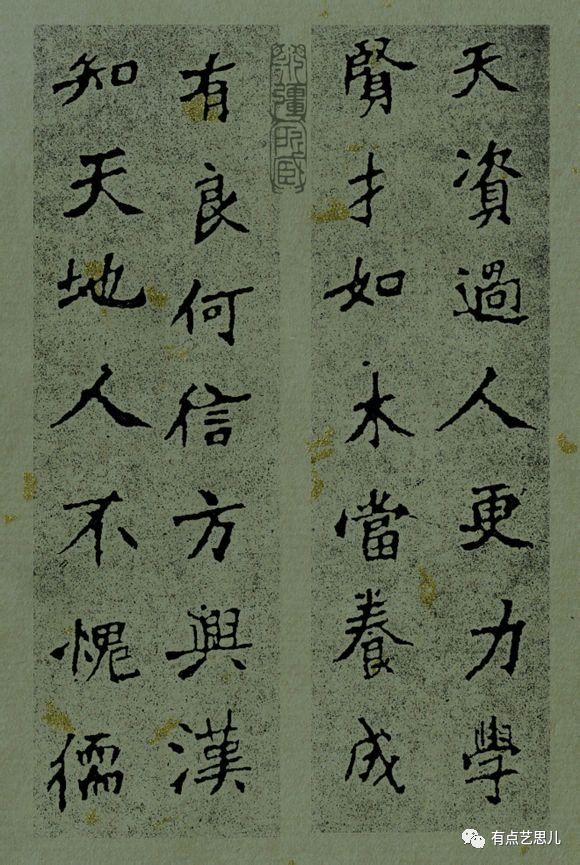 天資過人更力學
賢才如木當養成
有良何信方興漢
知天地人不愧儒
有点艺思儿